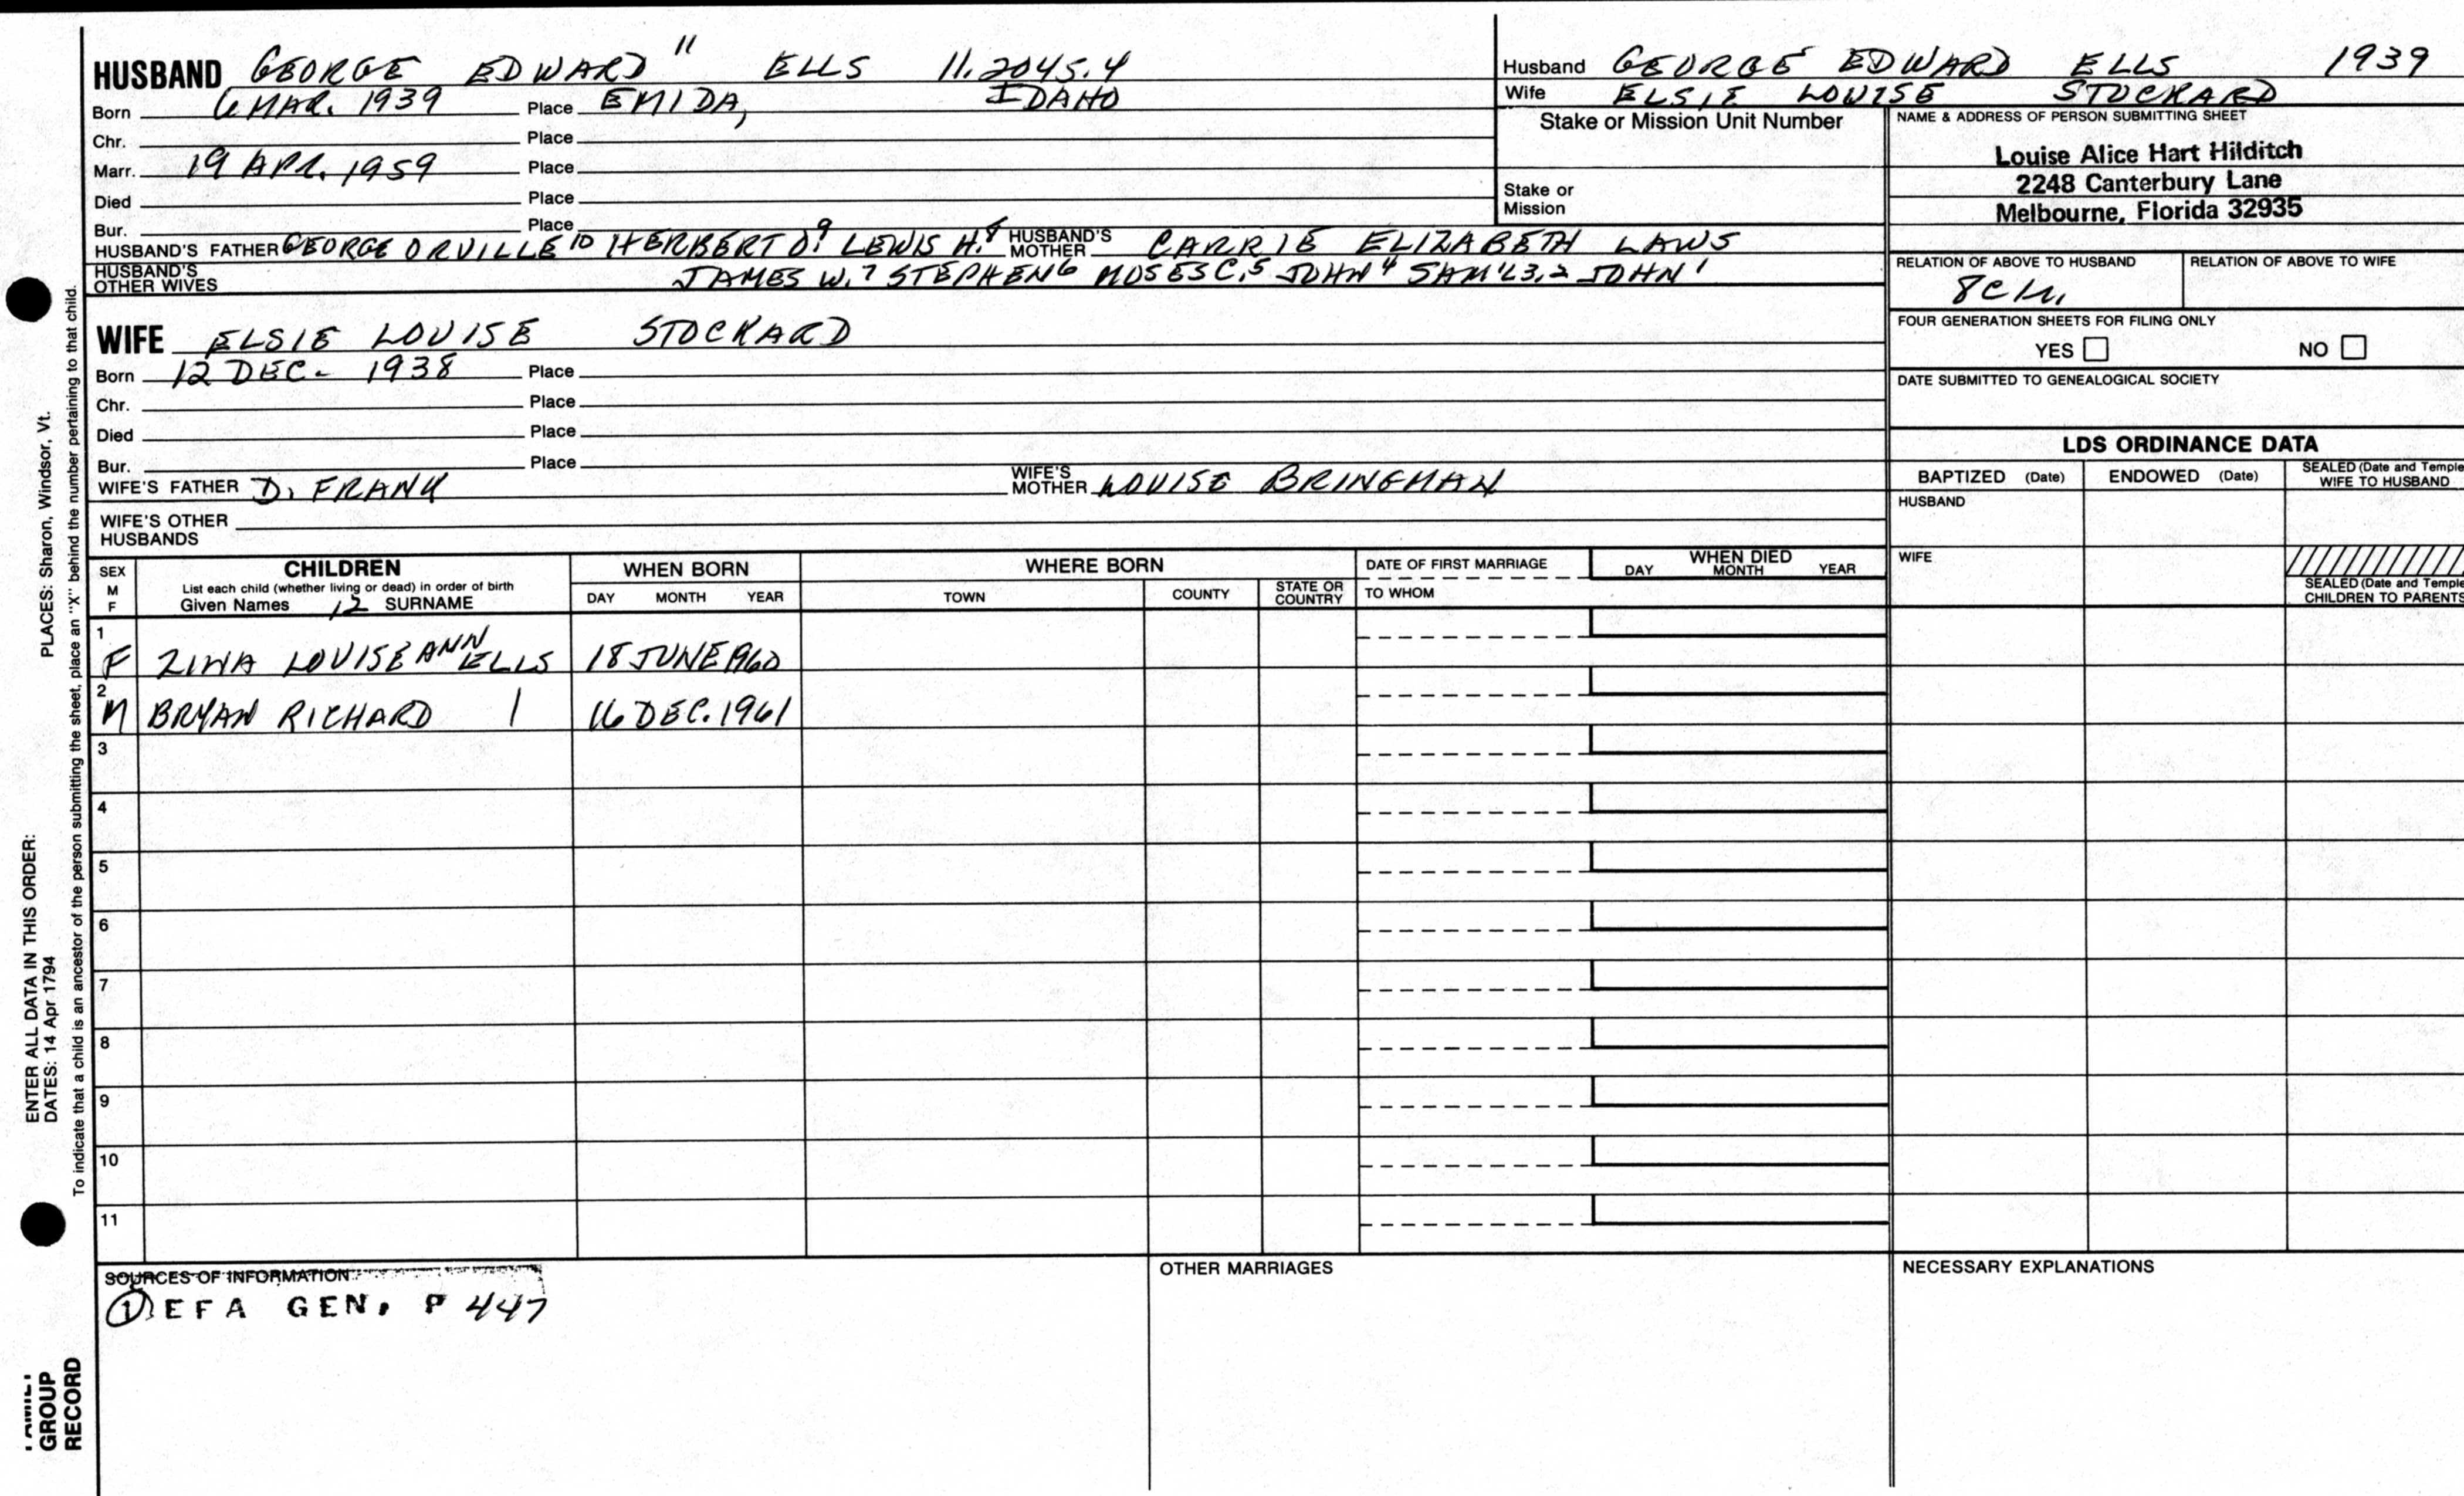 HUSBAND GEORGE EDWARD 11 ELLS 11.2045.4
Born 6 MAR. 1939 Place EMIDA, IDAHO
Chr. Place
Marr. 19 APR. 1959 Place
Died Place
Bur. Place
HUSBAND'S FATHER GEORGE ORVILLE 10 HERBERT O. 9 LEWIS H. 8 HUSBAND'S MOTHER CARRIE ELIZABETH LAWS
HUSBAND'S OTHER WIVES JAMES W. 7 STEPHEN 6 MOSES C. 5 JOHN 4 SAM'L 3, 2 JOHN 1
Husband GEORGE EDWARD ELLS 1939
Wife ELSIE LOUISE STOCKARD
Stake or Mission Unit Number
Stake or
Mission
NAME & ADDRESS OF PERSON SUBMITTING SHEET
Louise Alice Hart Hilditch
2248 Canterbury Lane
Melbourne, Florida 32935
RELATION OF ABOVE TO HUSBAND RELATION OF ABOVE TO WIFE
FOUR GENERATION SHEETS FOR FILING ONLY
YES NO
DATE SUBMITTED TO GENEALOGICAL SOCIETY
WIFE ELSIE LOUISE STOCKARD
Born 12 DEC. 1938 Place
Chr. Place
Died Place
Bur. Place
WIFE'S FATHER D. FRANK WIFE'S MOTHER LOUISE BRINGMAN
WIFE'S OTHER
HUSBANDS
LDS ORDINANCE DATA
BAPTIZED (Date) ENDOWED (Date) SEALED (Date and Temple
WIFE TO HUSBAND
HUSBAND
WIFE
SEALED (Date and Temple
CHILDREN TO PARENTS
SEX
M
F
CHILDREN
List each child (whether living or dead) in order of birth
Given Names 12 SURNAME
WHEN BORN
DAY MONTH YEAR
WHERE BORN
TOWN COUNTY STATE OR COUNTRY
DATE OF FIRST MARRIAGE
TO WHOM
WHEN DIED
DAY MONTH YEAR
1
F ZINA LOUISE ANN ELLS 18 JUNE 1960
2
M BRYAN RICHARD 16 DEC. 1961
3
4
5
6
7
8
9
10
11
SOURCES OF INFORMATION
1 EFA GEN. P 447
OTHER MARRIAGES
NECESSARY EXPLANATIONS
ENTER ALL DATA IN THIS ORDER:
DATES: 14 Apr 1794
PLACES: Sharon, Windsor, Vt.
To indicate that a child is an ancestor of the person submitting the sheet, place an "X" behind the number pertaining to that child.
GROUP
RECORD